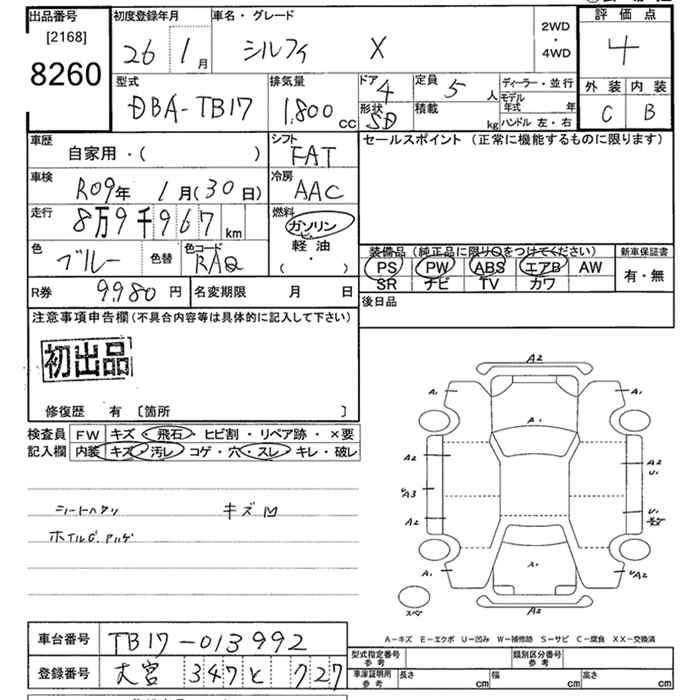 出品番号
[2168]
8260
初度登録年月
26 1月
車名・グレード
シルフィ X
2WD
・
4WD
評価点
4
外装 内装
C B
型式
DBA-TB17
排気量
1,800 cc
ドア
4
形状
SD
定員
5 人
積載
kg
ディーラー・並行
モデル年式 年
ハンドル 左・右
車歴
自家用・( )
シフト
FAT
セールスポイント (正常に機能するものに限ります)
車検
R09年 1月(30日)
冷房
AAC
走行
8万9千967 km
燃料
ガソリン
軽油
( ・ )
色
ブルー
色替
色コード
RAQ
装備品 (純正品に限り○をつけてください)
PS PW ABS エアB AW
SR ナビ TV カワ
新車保証書
有・無
R券 9,980 円
名変期限 月 日
後日品
注意事項申告欄 (不具合内容等は具体的に記入して下さい)
初出品
修復歴 有 [箇所 ]
検査員
記入欄
FW キズ・飛石・ヒビ割・リペア跡・×要
内装 キズ・汚レ・コゲ・穴・スレ・キレ・破レ
シートヘタリ キズM
A2
A1 A1
A1
A2 A2
U1
UA3
A2 U1
A1
A1 UA2
スペア
A2
A-キズ E-エクボ U-凹み W-補修跡 S-サビ C-腐食 XX-交換済
車台番号 TB17-013992
登録番号 大宮 347 と 727
型式指定番号
参考
類別区分番号
参考
車庫証明用
参考
長さ cm 幅 cm 高さ cm